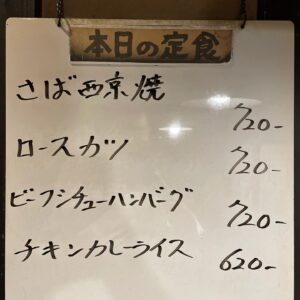 本日の定食
さば西京焼
720-
ロースカツ
720-
ビーフシチューハンバーグ
720-
チキンカレーライス
620-